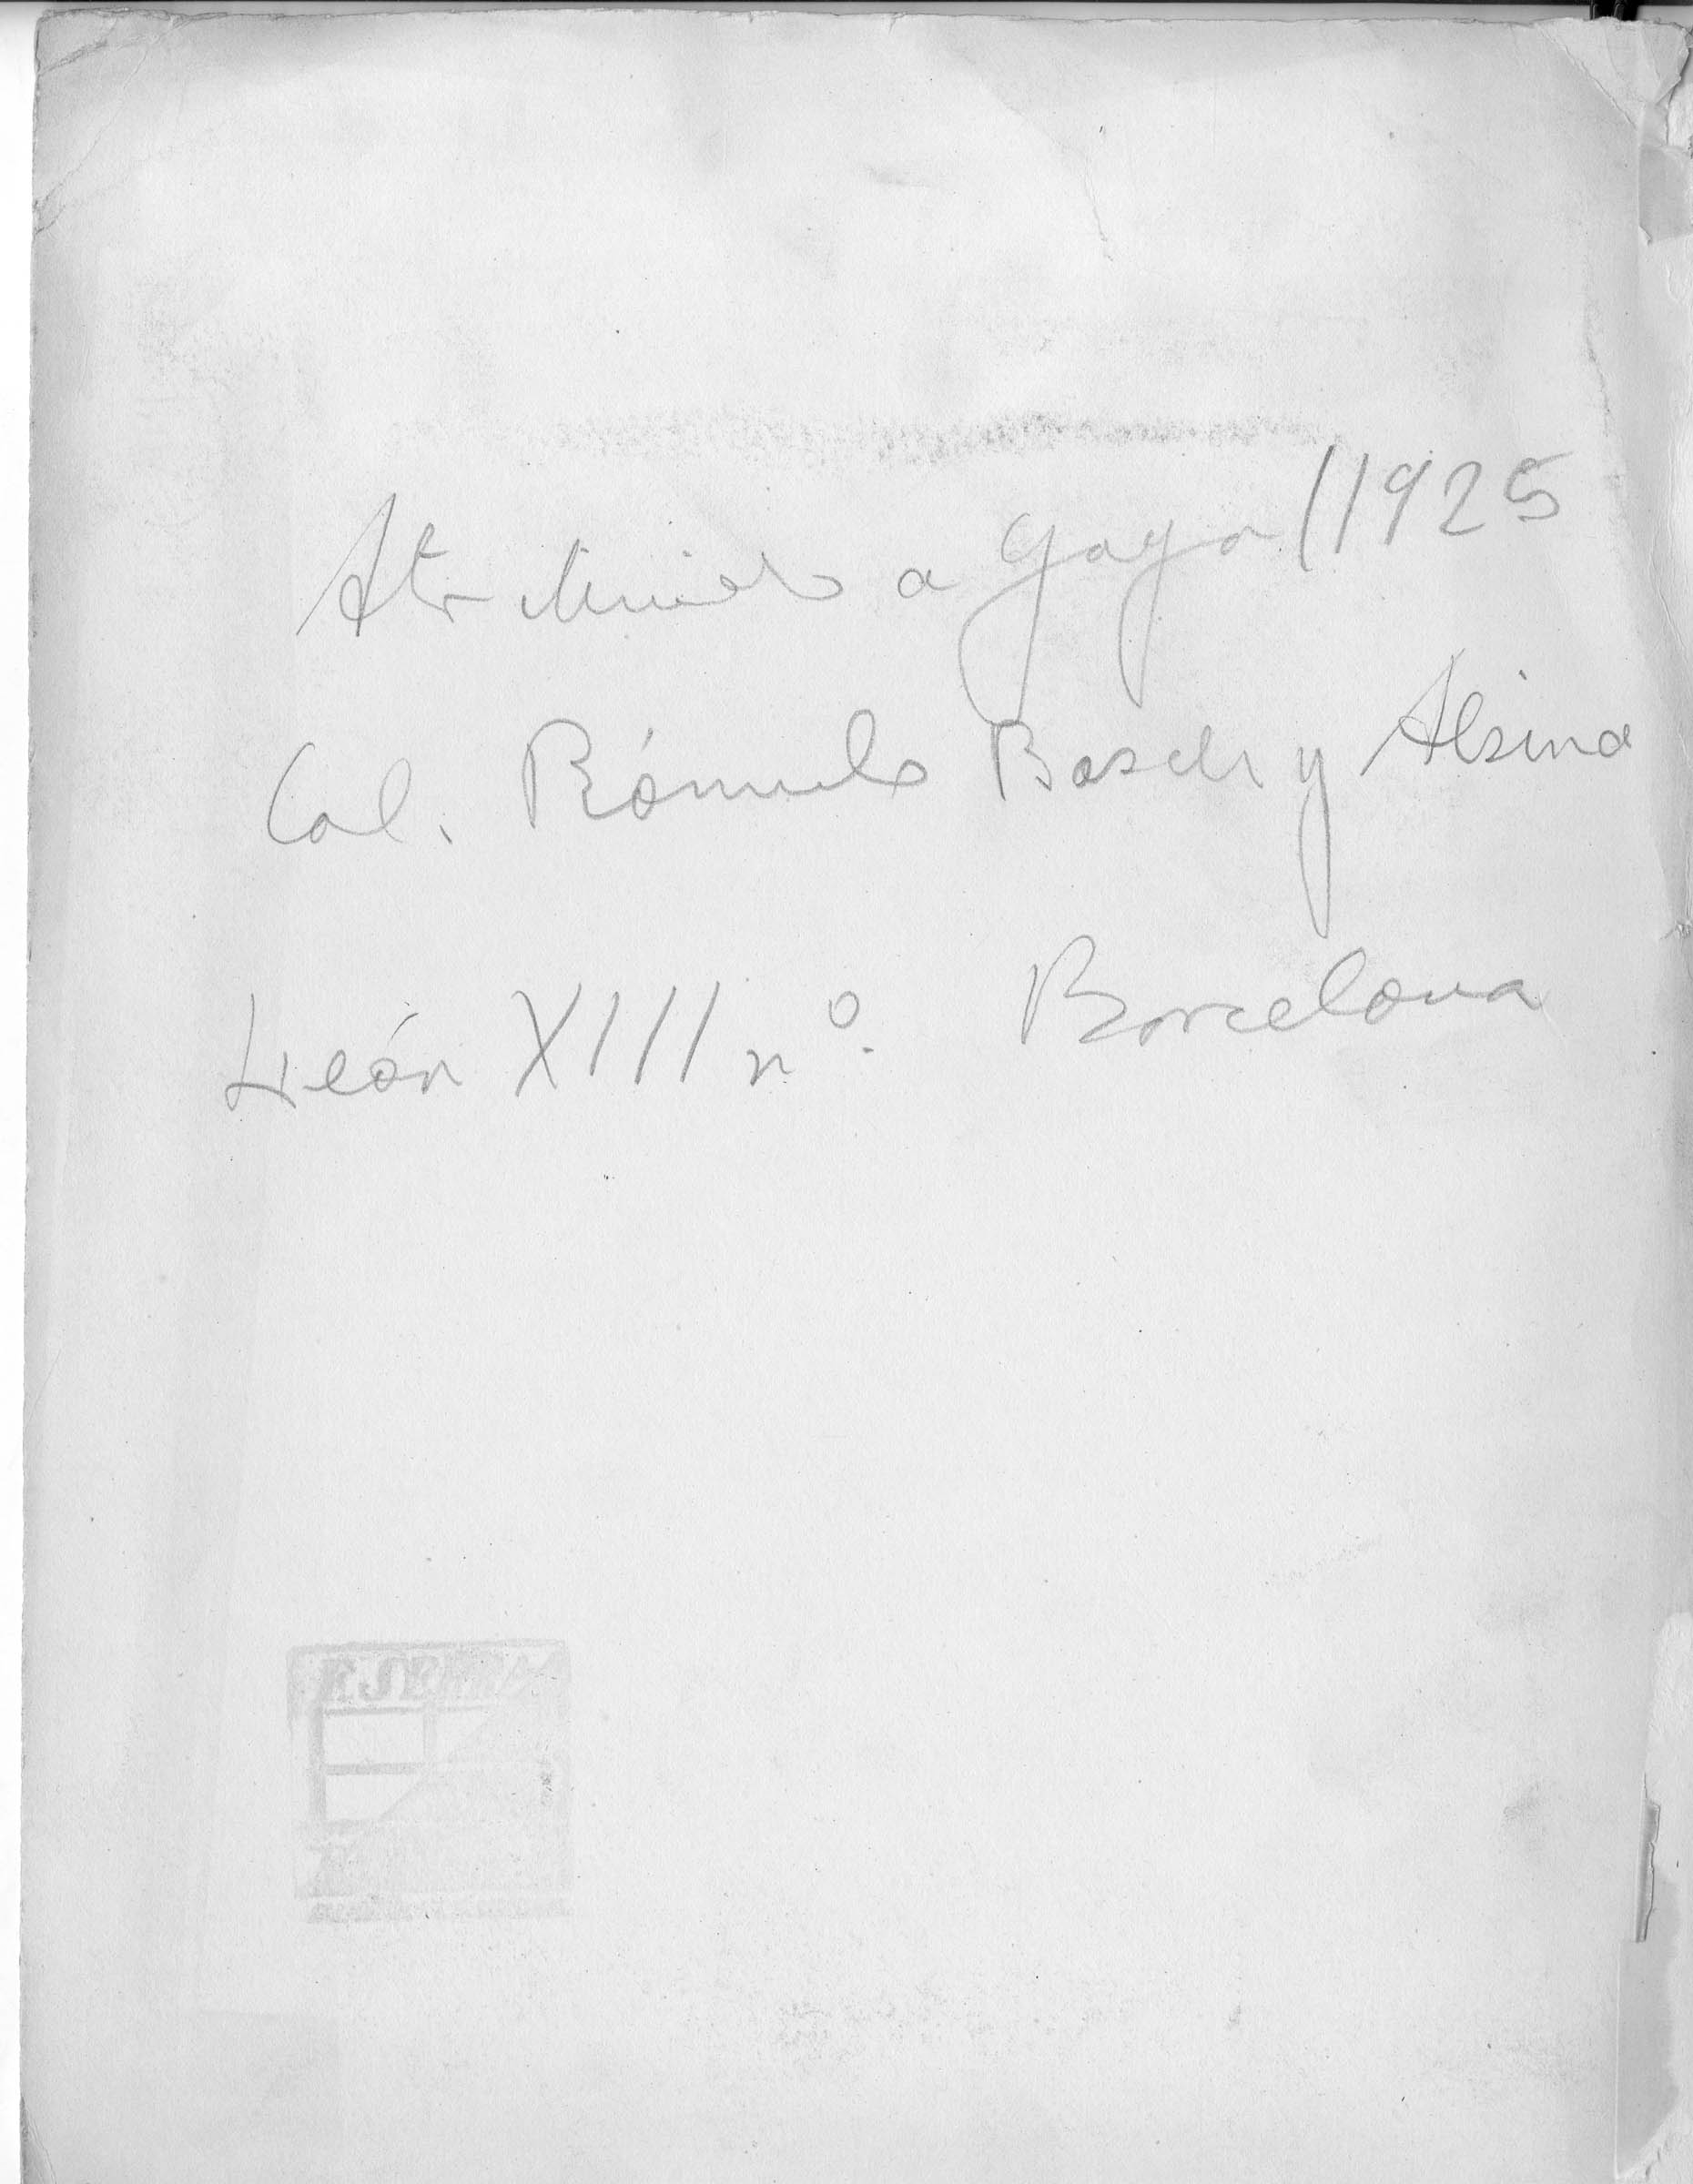 a Goya (1925
Col. Rómulo Bosch y Alsina
León XIII nº. Barcelona